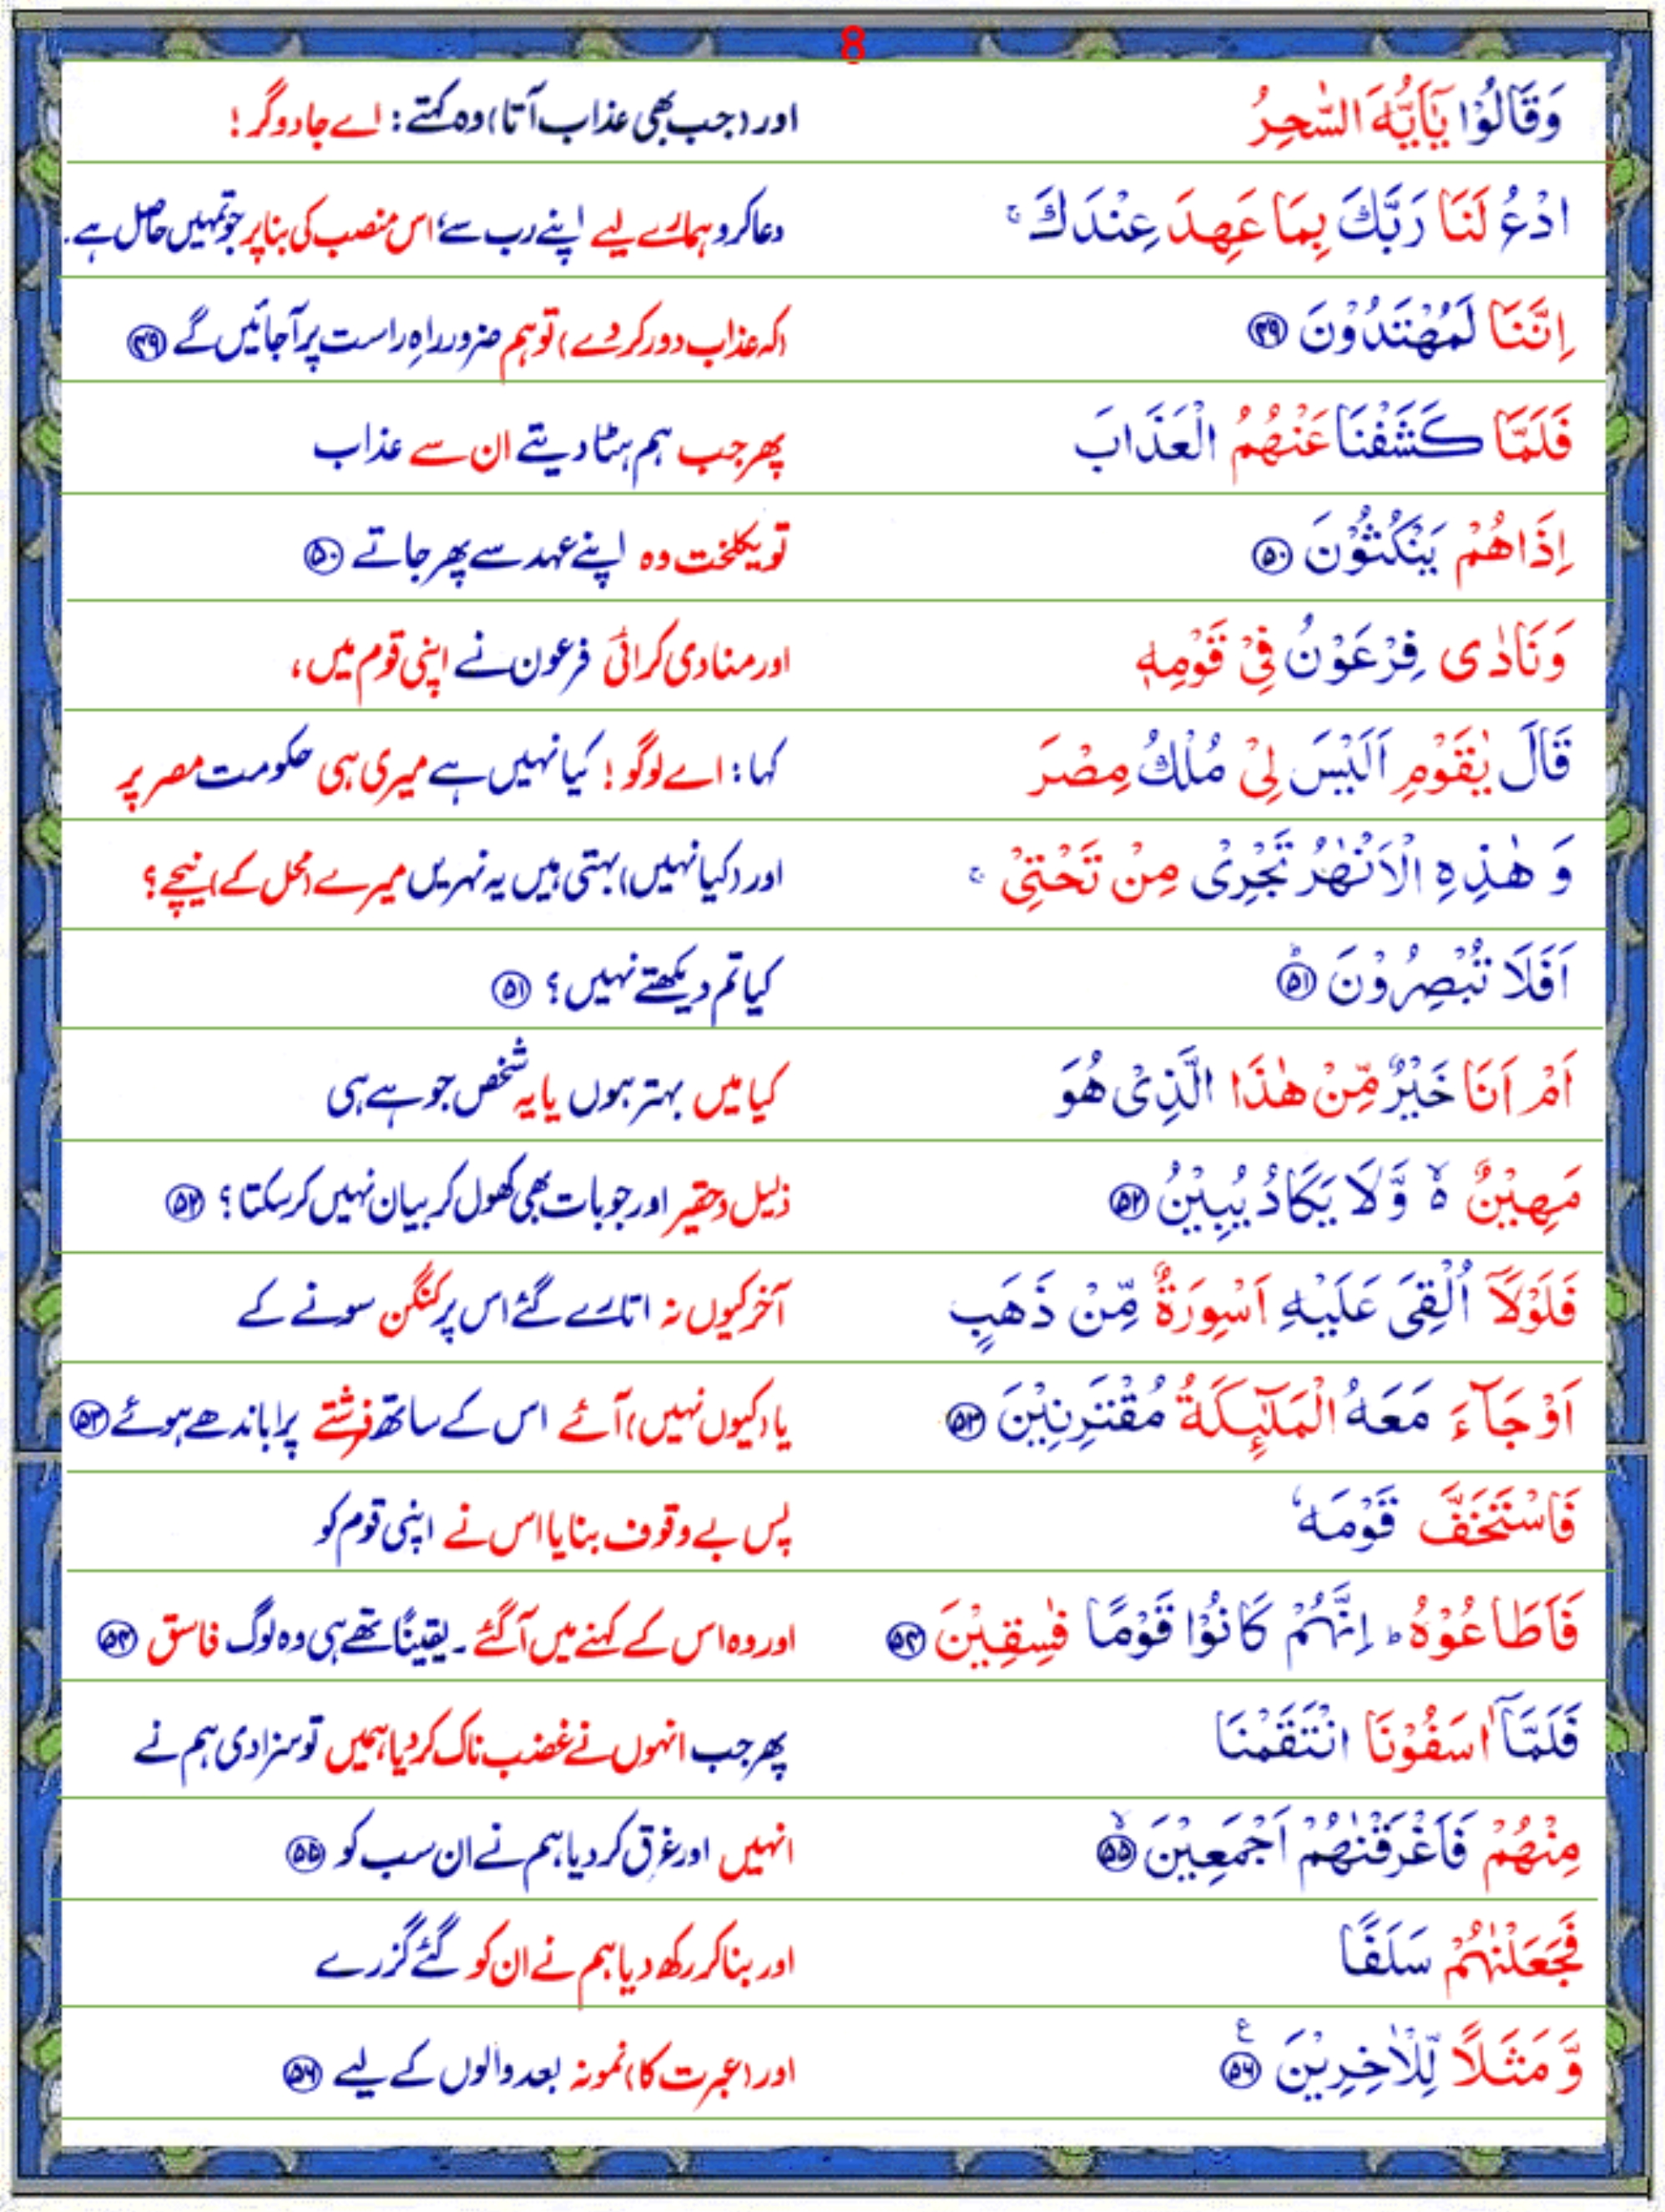 8
وَقَالُوْا يٰۤاَيُّهَ السّٰحِرُ اور (جب بھی عذاب آتا) وہ کہتے: اے جادوگر!
ادْعُ لَنَا رَبَّكَ بِمَا عَهِدَ عِنْدَكَ ۚ دعا کرو ہمارے لیے اپنے رب سے، اس منصب کی بنا پر جو تمہیں حاصل ہے۔
اِنَّنَا لَمُهْتَدُوْنَ ﴿۴۹﴾ (کہ عذاب دور کر دے) تو ہم ضرور راہِ راست پر آجائیں گے ﴿۴۹﴾
فَلَمَّا كَشَفْنَا عَنْهُمُ الْعَذَابَ پھر جب ہم ہٹا دیتے ان سے عذاب
اِذَا هُمْ يَنْكُثُوْنَ ﴿۵۰﴾ تو یکلخت وہ اپنے عہد سے پھر جاتے ﴿۵۰﴾
وَنَادٰى فِرْعَوْنُ فِيْ قَوْمِهٖ اور منادی کرائی فرعون نے اپنی قوم میں،
قَالَ يٰقَوْمِ اَلَيْسَ لِيْ مُلْكُ مِصْرَ کہا: اے لوگو! کیا نہیں ہے میری ہی حکومت مصر پر
وَ هٰذِهِ الْاَنْهٰرُ تَجْرِيْ مِنْ تَحْتِيْ ۚ اور (کیا نہیں) بہتی ہیں یہ نہریں میرے (محل کے) نیچے؟
اَفَلَا تُبْصِرُوْنَ ﴿ؕ۵۱﴾ کیا تم دیکھتے نہیں؟ ﴿۵۱﴾
اَمْ اَنَا خَيْرٌ مِّنْ هٰذَا الَّذِيْ هُوَ کیا میں بہتر ہوں یا یہ شخص جو ہے ہی
مَهِيْنٌ ۙ۬ وَّلَا يَكَادُ يُبِيْنُ ﴿۵۲﴾ ذلیل وحقیر اور جو بات بھی کھول کر بیان نہیں کر سکتا؟ ﴿۵۲﴾
فَلَوْلَاۤ اُلْقِيَ عَلَيْهِ اَسْوِرَةٌ مِّنْ ذَهَبٍ آخر کیوں نہ اتارے گئے اس پر کنگن سونے کے
اَوْ جَآءَ مَعَهُ الْمَلٰٓئِكَةُ مُقْتَرِنِيْنَ ﴿۵۳﴾ یا (کیوں نہیں) آئے اس کے ساتھ فرشتے پرا باندھے ہوئے ﴿۵۳﴾
فَاسْتَخَفَّ قَوْمَهٗ پس بے وقوف بنایا اس نے اپنی قوم کو
فَاَطَاعُوْهُ ؕ اِنَّهُمْ كَانُوْا قَوْمًا فٰسِقِيْنَ ﴿۵۴﴾ اور وہ اس کے کہنے میں آگئے۔ یقیناً تھے ہی وہ لوگ فاسق ﴿۵۴﴾
فَلَمَّاۤ اٰسَفُوْنَا انْتَقَمْنَا پھر جب انہوں نے غضب ناک کر دیا ہمیں تو سزا دی ہم نے
مِنْهُمْ فَاَغْرَقْنٰهُمْ اَجْمَعِيْنَ ﴿ۙ۵۵﴾ انہیں اور غرق کر دیا ہم نے ان سب کو ﴿۵۵﴾
فَجَعَلْنٰهُمْ سَلَفًا اور بنا کر رکھ دیا ہم نے ان کو گئے گزرے
وَّ مَثَلًا لِّلْاٰخِرِيْنَ ﴿۵۶﴾ ع اور (عبرت کا) نمونہ بعد والوں کے لیے ﴿۵۶﴾